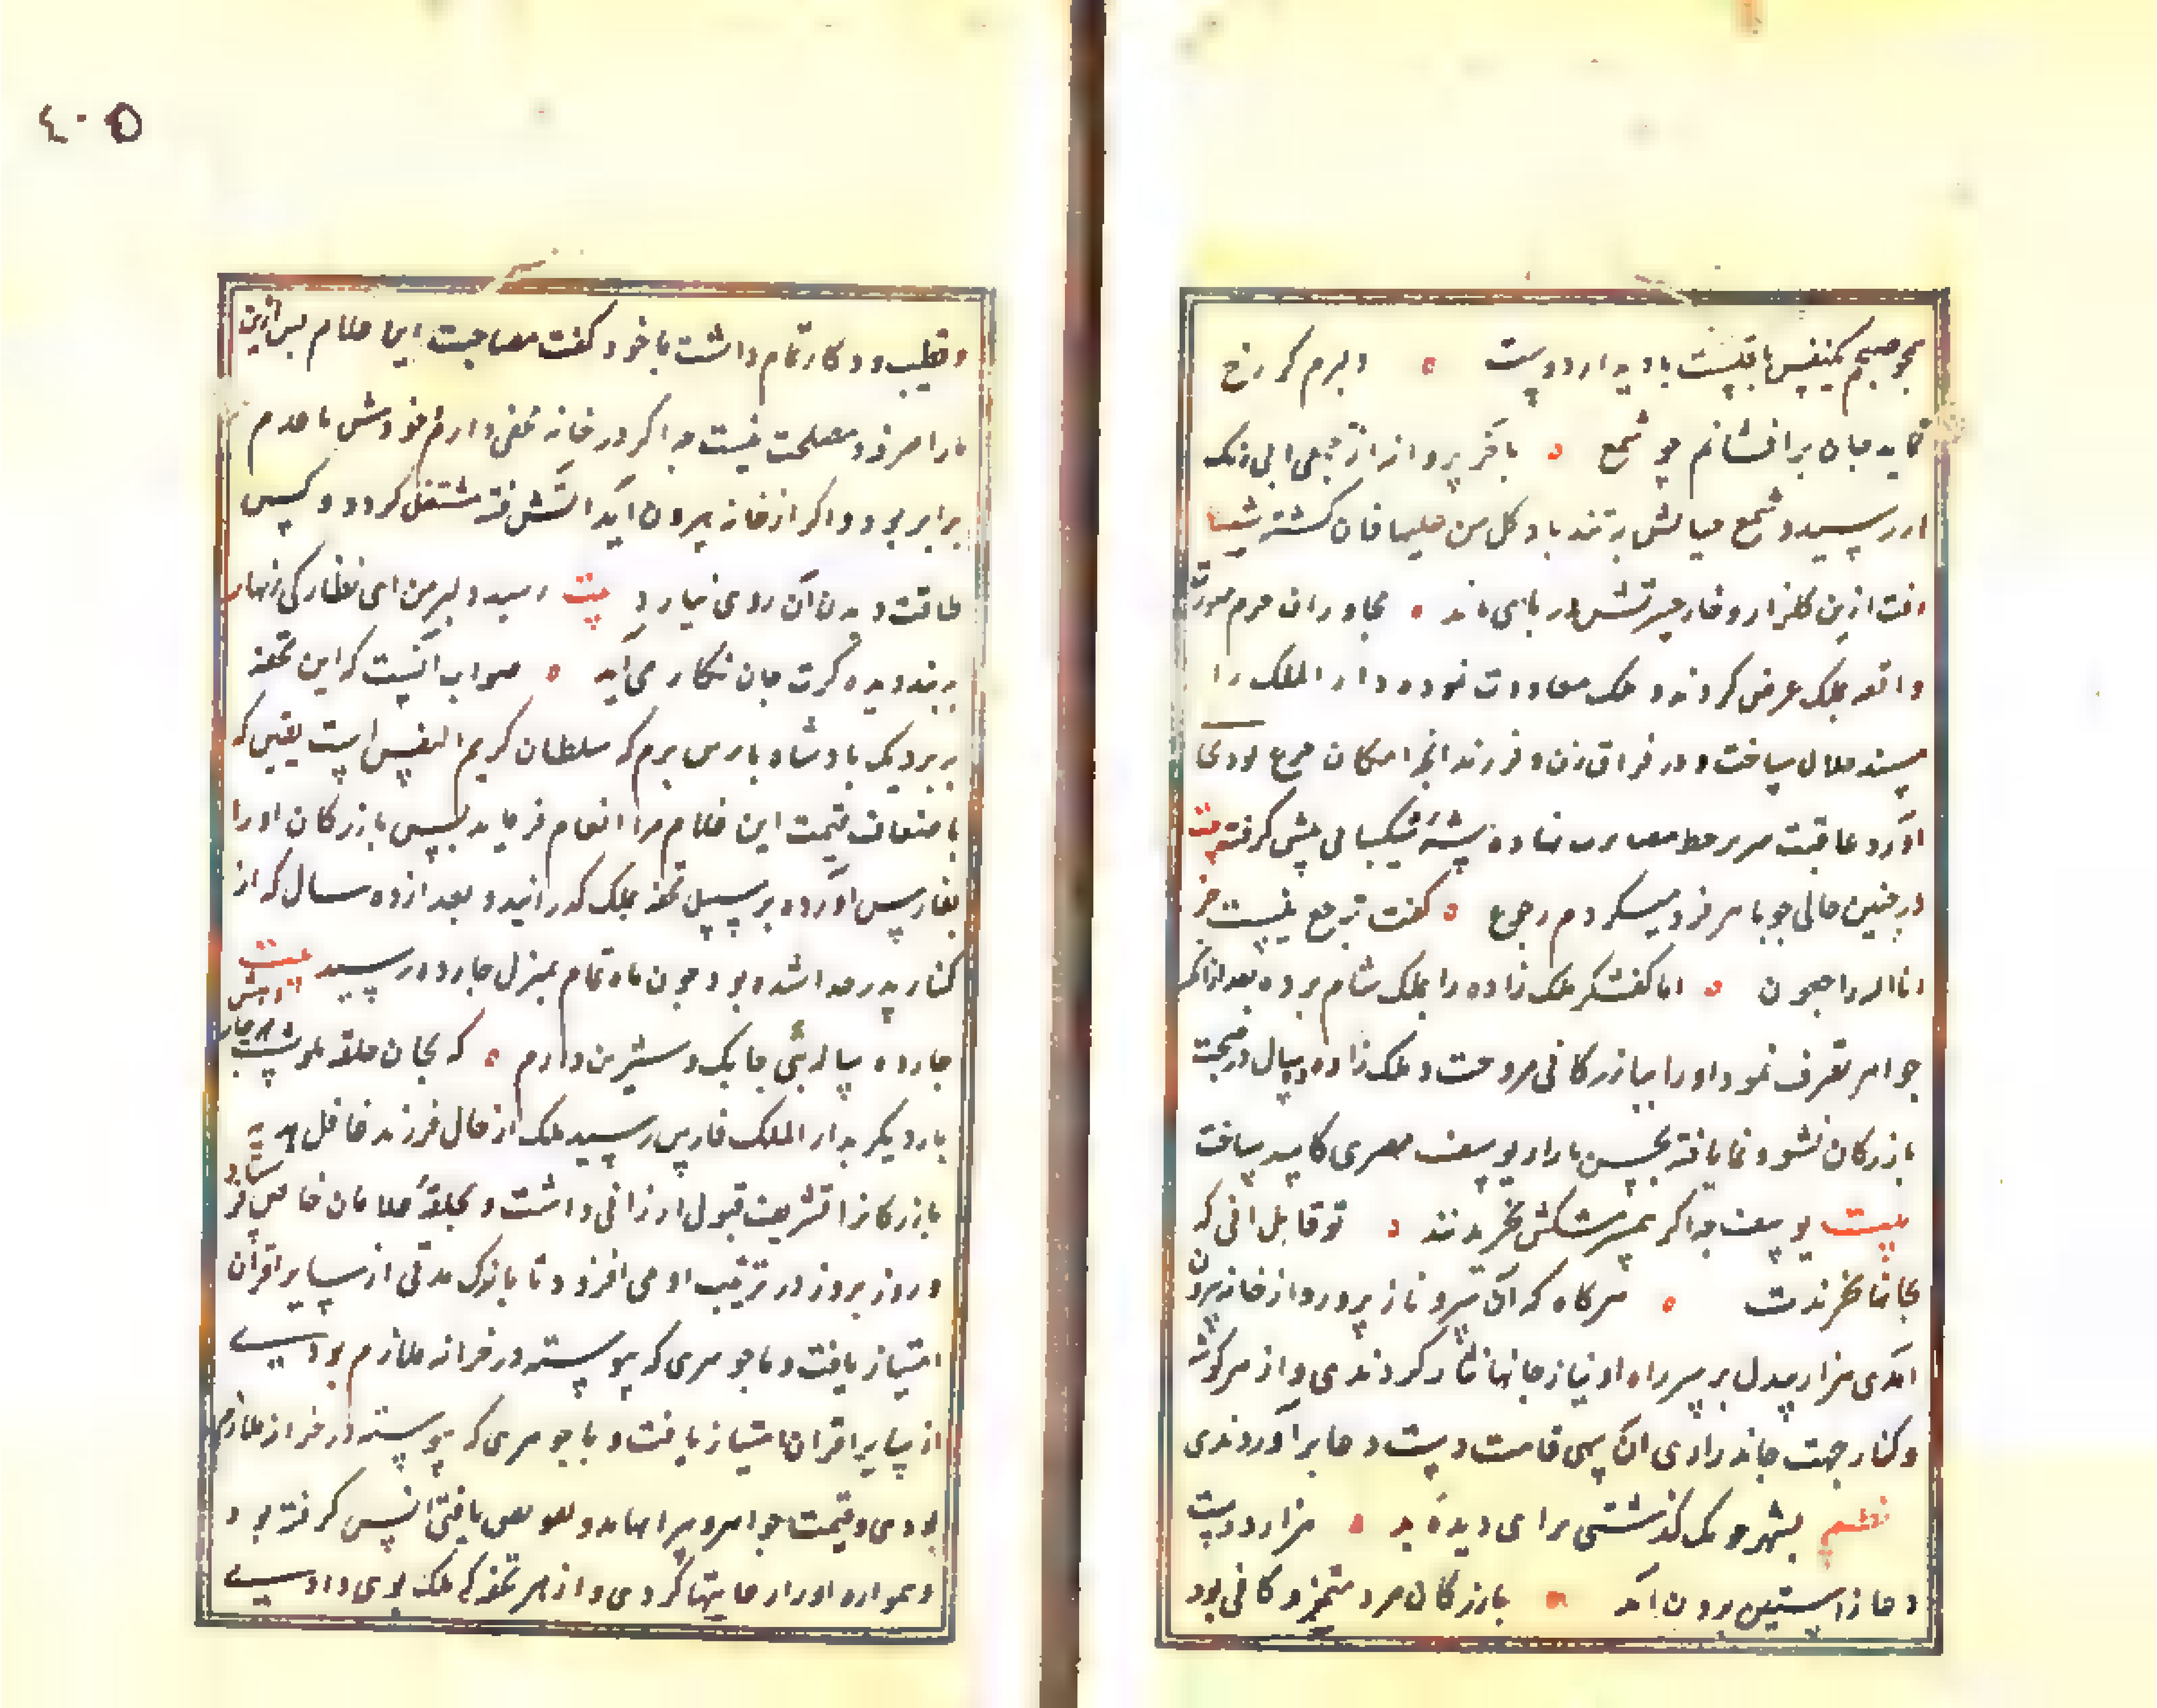 همچو صبحم یکنفس باقیست با دیدار دوست ه دلبرم کو رخ
نماید جان برافشانم چو شمع ه باخر پرواز از
رسید و شمع حیاتش به تند باد کل من علیها فان کشته شد
ازین کلزار و خار حیرتش در پای ماند ه مجاوران حرم صورت
واقعه بملک عرض کردند و ملک معاودت نموده دار الملک را
مسند ملال ساخت و در فراق زن و فرزند انچه امکان جزع بودی
آورد عاقبت سر بر خط مصابرت نهاده پیشه شکیبائی پیش کرفت بیت
در چنین حالی چو با هر فرد میکردم رجوع ه کفت ترجیع نیست جز
انا الیه راجعون ه اما کفشکر ملک زاده را بملک شام برده بعد از انکه
جواهر تصرف نمود او را ببازرکانی فروخت و ملک زاده ده سال در صحبت
بازرکان نشو و نما یافته بحسن بازار یوسف مصری کاسد ساخت
بیت یوسف چه اکر بهر پیشکش بخریدند ه تو قابل آنی که
بجانها بخرندت ه هرکاه که آن سرو ناز پرورد از خانه بیرون
آمدی هزار بیدل بر سر راه او نیاز جانها نثار کردندی و از هر کوشه
و کنار جهت جاندرازی آن سهی قامت دست دعا برآوردندی
نظم بشهر و کذشتی برای دیده بد ه هزار دست
دعا ز آستین برون آمد ه بازرکان مرد متمیز و کافی بود
٤٠٥
و تمام داشت با خود کفت مصاحبت این غلام پس ازین
ما را صرفه و مصلحت نیست چه اکر در خانه مخفی دارم خودش با عدم
برابر بود و اکر از خانه بیرون آید آتش فتنه مشتعل کردد و کسی
طاقت دیدن آن روی نیارد بیت رسید دلبر من ای نظارکی زنهار
ببند دیده کرت جان بکار می آید ه صواب آنست که این تحفه
نزدیک بادشاه پارس برم که سلطان کریم النفس است یقین که
باضعاف قیمت این غلام مرا انعام فرماید پس بازرکان او را
بفارس آورده بر سبیل تحفه بملک کذرانید و بعد از ده سال که از
کنار پدر جدا شده بود چون ماه تمام بمنزل چارده رسید بیت
چارده ساله بتی چابک و شیرین دارم ه که بجان حلقه بکوشست مه چاردهش
بار دیکر بدار الملک فارس رسید ملک از حال فرزند غافل
بازرکانرا تشریف قبول ارزانی داشت و غلامان خاص
و روز بروز در تربیت او می افزود تا باندک مدتی از سایر اقران
امتیاز یافت و با جوهری که پیوسته در خزانه ملازم بودی
از سایر اقران امتیاز یافت و با جوهری که پیوسته در خزانه ملازم
بودی و قیمت جواهر و انس کرفته بود
و همواره او را رعایتها کردی و از هر تحفه که ملک بوی دادی